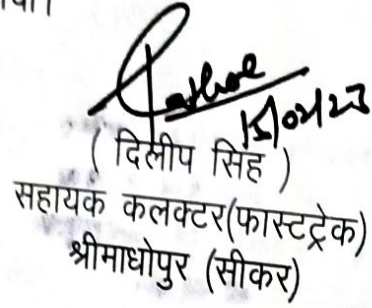 15/02/23
( दिलीप सिंह )
सहायक कलक्टर(फास्टट्रेक)
श्रीमाधोपुर (सीकर)